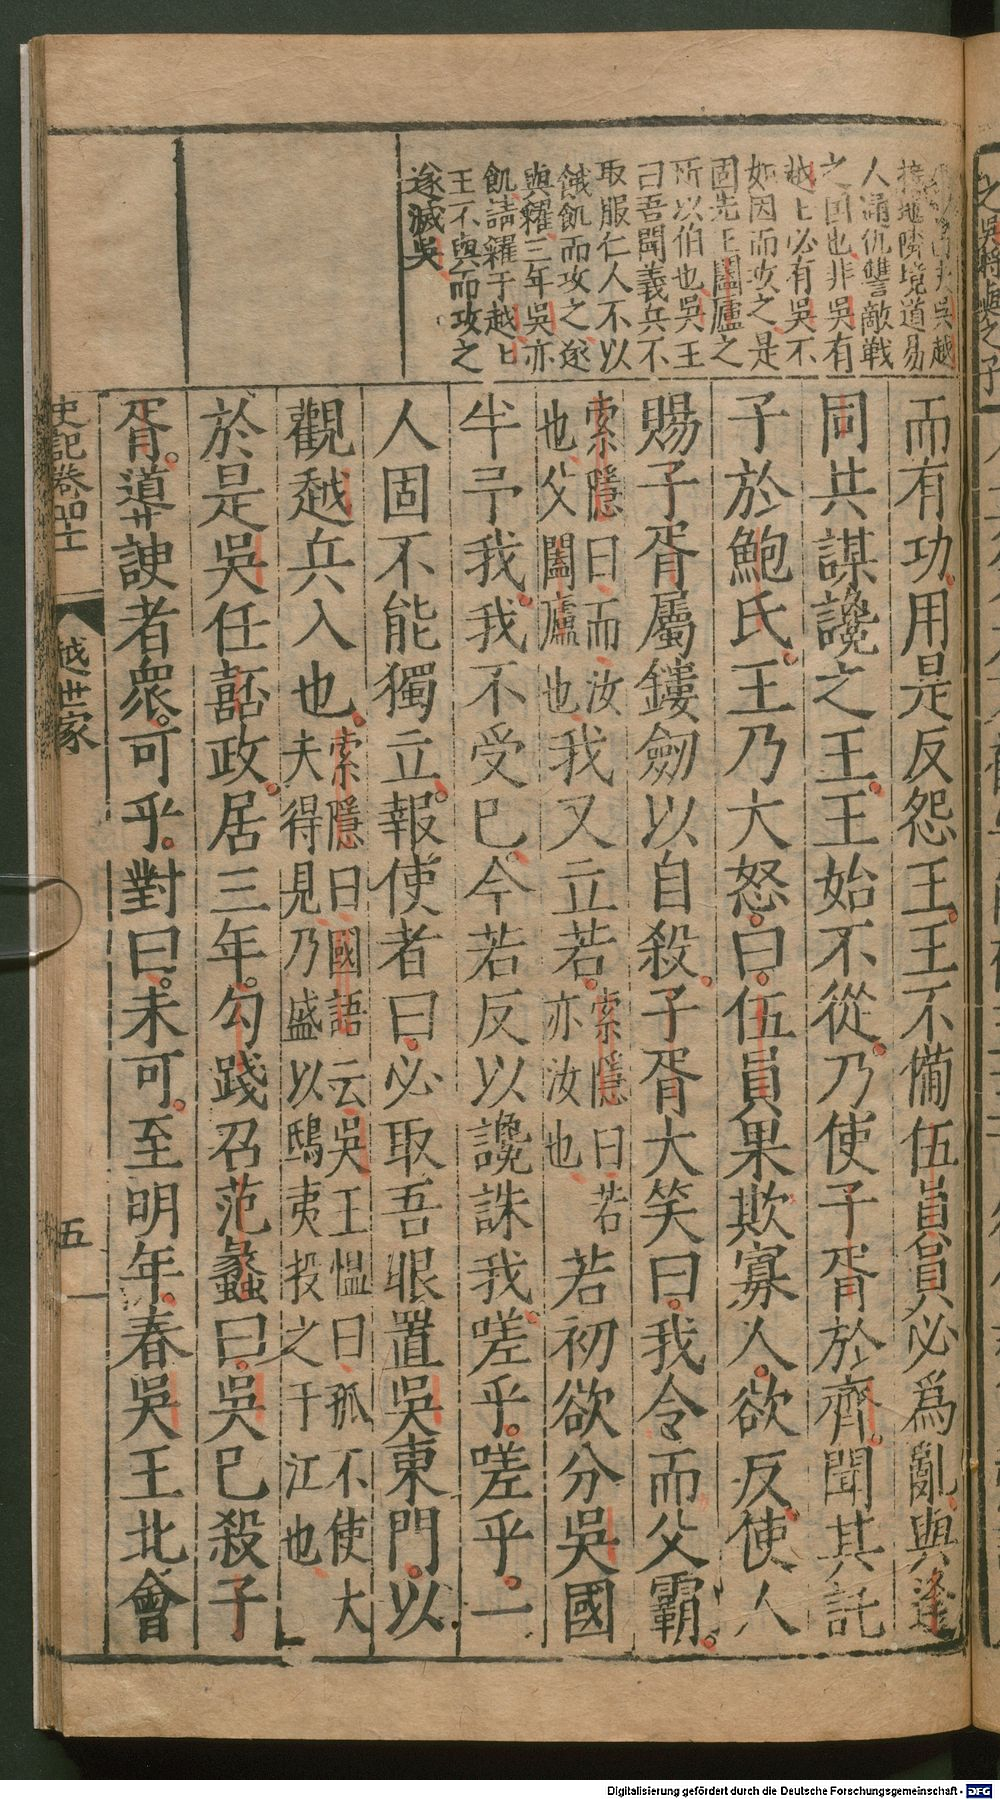 吳越
接壤隣境道易
人通仇讐敵戰
之國也非吳有
越〻必有吳不
如因而攻之是
固先王闔廬之
所以伯也吳王
曰吾聞義兵不
取服仁人不以
餓飢而攻之遂
與糴三年吳亦
飢請糴于越〻
王不與而攻之
遂滅吳
而有功用是反怨王王不備伍員員必爲亂與逢
同共謀讒之王王始不從乃使子胥於齊聞其託
子於鮑氏王乃大怒曰伍員果欺寡人欲反使人
賜子胥屬鏤劒以自殺子胥大笑曰我令而父霸
索隱曰而汝也父闔廬也我又立若索隱曰若亦汝也若初欲分吳國
半予我我不受已今若反以讒誅我嗟乎嗟乎一
人固不能獨立報使者曰必取吾眼置吳東門以
觀越兵入也索隱曰國語云吳王慍曰孤不使大夫得見乃盛以鴟夷投之于江也
於是吳任嚭政居三年勾踐召范蠡曰吳已殺子
胥道䛕者衆可乎對曰未可至明年春吳王北會
史記卷四十一
越世家
五
Digitalisierung gefördert durch die Deutsche Forschungsgemeinschaft - DFG